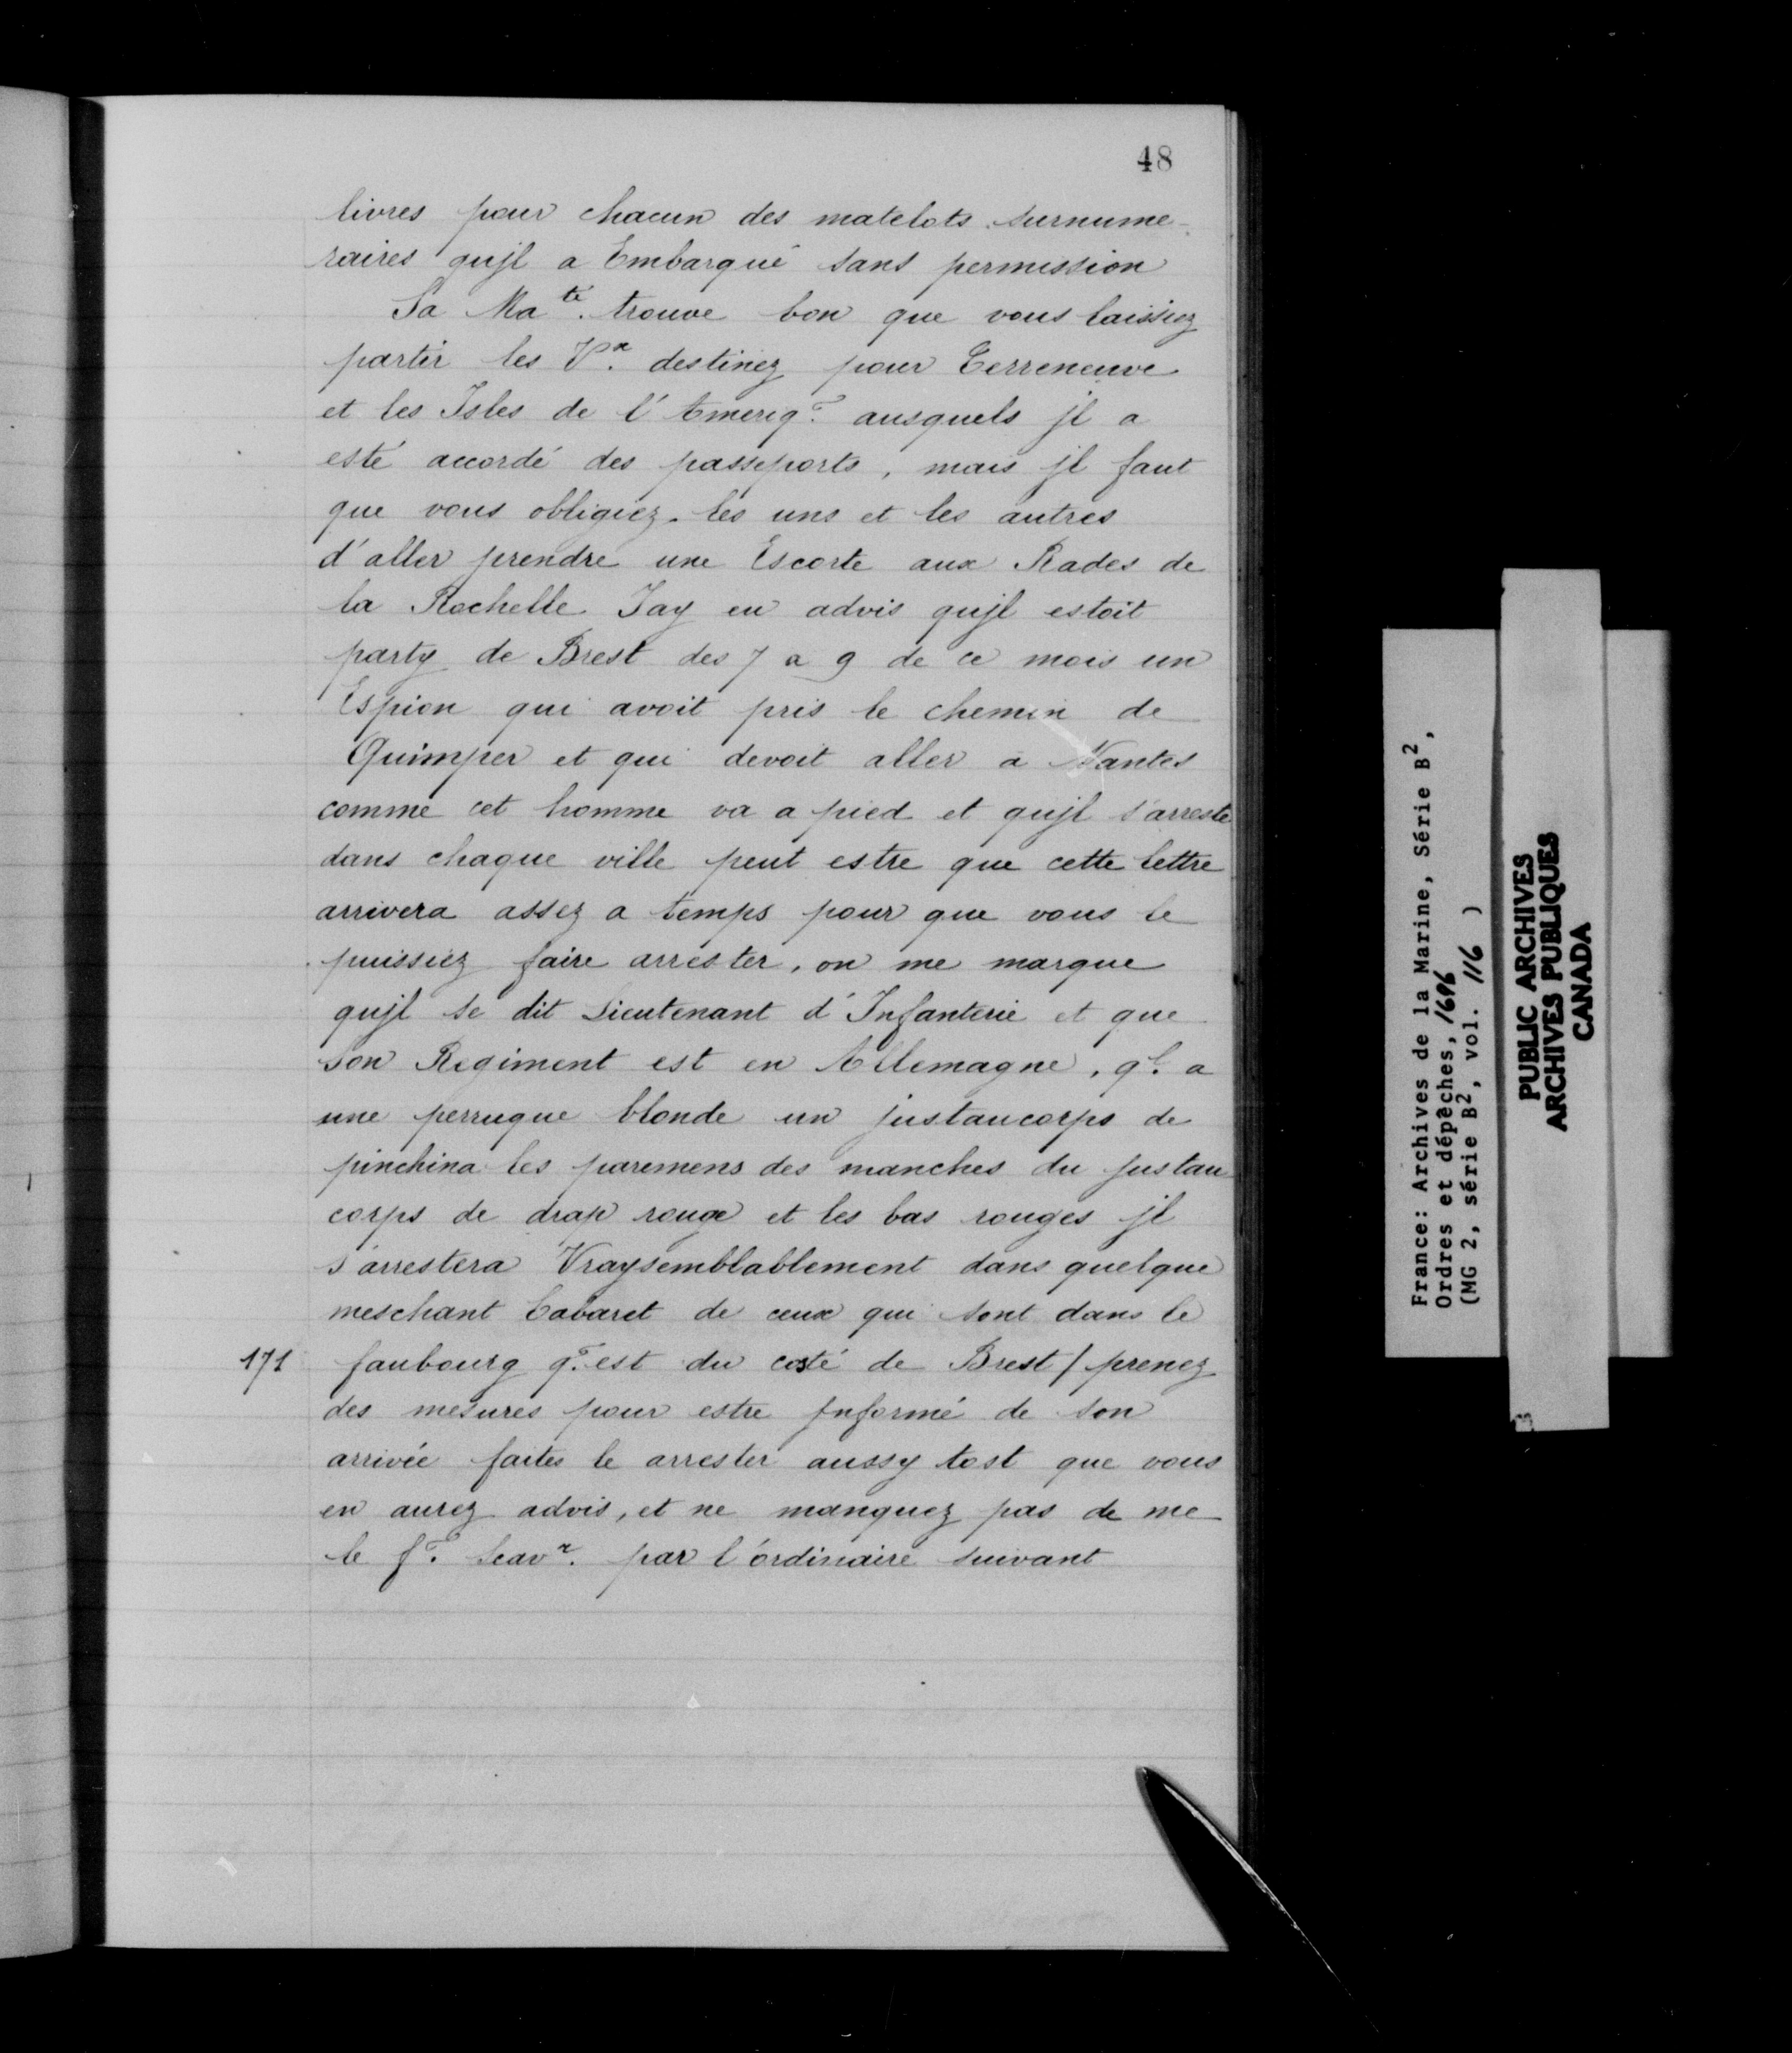 48
livres pour chacun des matelots surnume-
raires qujl a Embarqué sans permission
Sa Ma.té trouve bon que vous laissiez
partir les V.x destinez pour Terreneuve
et les Isles de l'Ameriq.e ausquels jl a
esté accordé des passeports, mais jl faut
que vous obligiez les uns et les autres
d'aller prendre une Escorte aux Rades de
la Rochelle Jay eu advis qujl estoit
party de Brest des 7 a 9 de ce mois un
Espion qui avoit pris le chemin de
Quimper et qui devoit aller a Nantes
comme cet homme va a pied et qujl s'arreste
dans chaque ville peut estre que cette lettre
arrivera assez a temps pour que vous le
puissiez faire arrester, on me marque
qujl se dit Lieutenant d'Infanterie et que
son Regiment est en Allemagne, q.l a
une perruque blonde un justaucorps de
pinchina les paremens des manches du justau
corps de drap rouge et les bas rouges jl
s'arrestera Vraysemblablement dans quelque
meschant Cabaret de ceux qui sont dans le
171 faubourg q.e est du costé de Brest / prenez
des mesures pour estre jnformé de son
arrivée faites le arrester aussy tost que vous
en aurez advis, et ne manquez pas de me
le f.e scav.r par l'ordinaire suivant
France: Archives de la Marine, Série B2,
Ordres et dépêches, 1696
(MG 2, série B2, vol. 116 )
PUBLIC ARCHIVES
ARCHIVES PUBLIQUES
CANADA